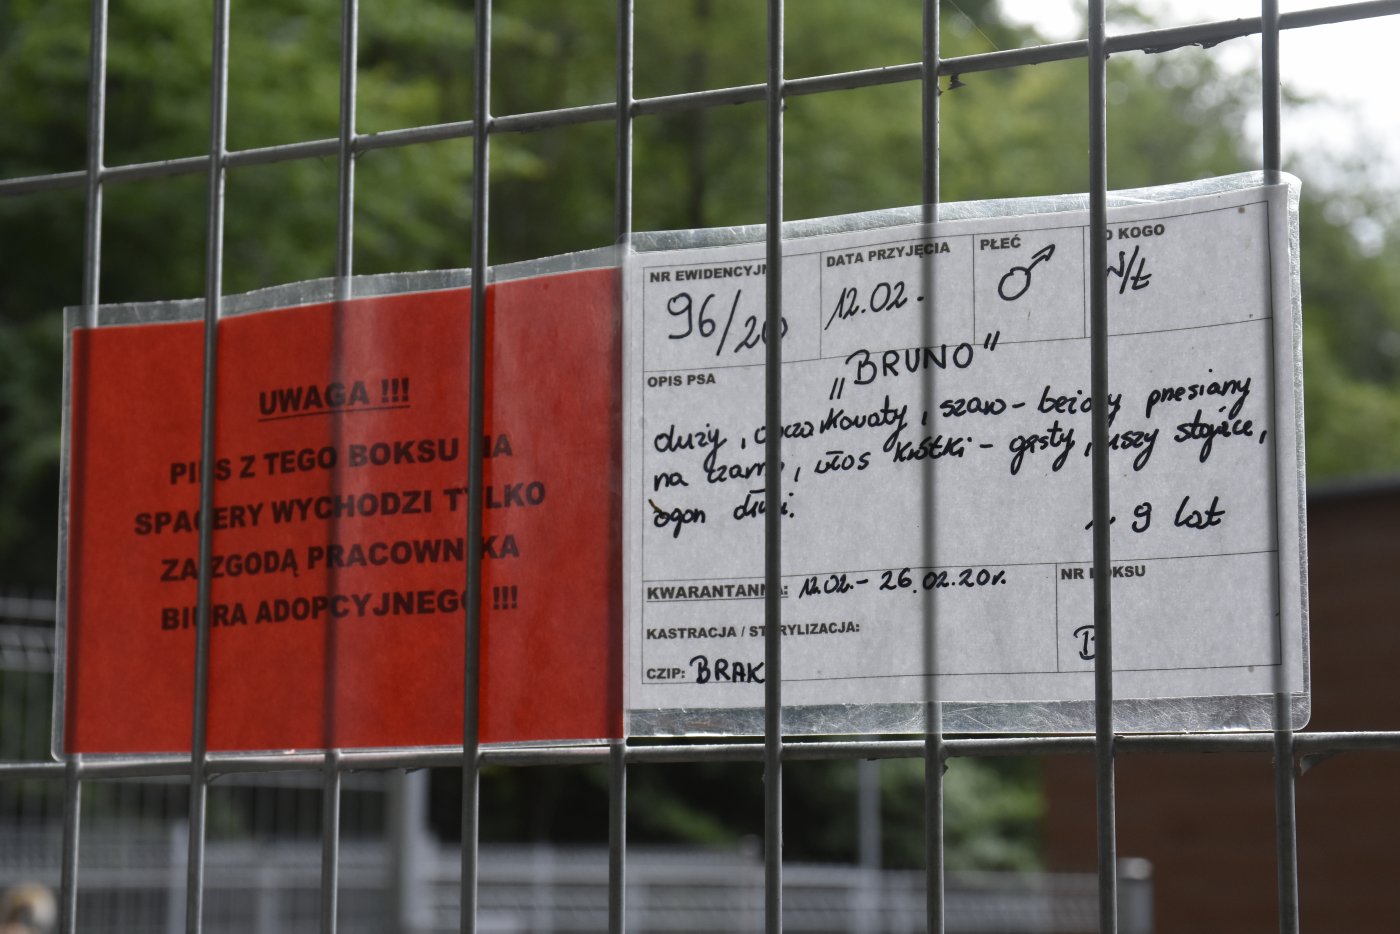 UWAGA !!!
PIES Z TEGO BOKSU NA
SPACERY WYCHODZI TYLKO
ZA ZGODĄ PRACOWNIKA
BIURA ADOPCYJNEGO !!!
NR EWIDENCYJN
96/20
DATA PRZYJĘCIA
12.02.
PŁEĆ
♂
OD KOGO
N/Ł
OPIS PSA
„BRUNO”
duży, owczarkowaty, szaro-beżowy pręsiany
na czarno, włos krótki - gęsty, uszy stojące,
ogon długi.
~ 9 lat
KWARANTANNA: 12.02.- 26.02.20r.
NR BOKSU
KASTRACJA / STERYLIZACJA:
CZIP: BRAK